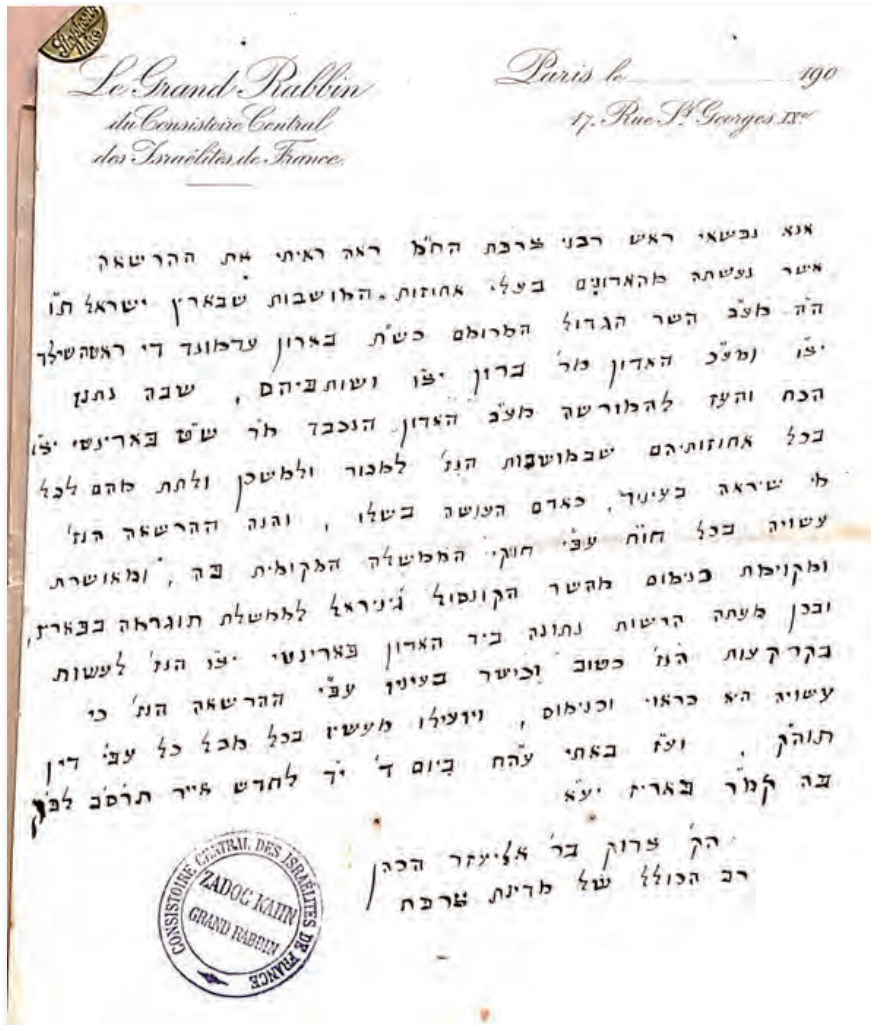 Le Grand Rabbin
du Consistoire Central
des Israélites de France.
Paris le 190
17. Rue St Georges. IXe
אנא נפשאי ראש רבני צרפת הח"מ ראה ראיתי את ההרשאה
אשר נעשתה מהאדונים בעלי אחוזות המושבות שבארץ ישראל ת"ו
ה"ה מע"כ השר הגדול המרומם כש"ת בארון עדמונד די ראטהשילד
יצ"ו ומע"כ האדון מר ברון יצ"ו ושותפיהם, שבה נתנו
הכח והעז להמורשה מע"כ האדון הנכבד מ"ר ש"ט פאריינטי יצ"ו
בכל אחוזותיהם שבמושבות הנז' למכור ולמשכן ולתת מהם לכל
מי שיראה בעיניו, כאדם העושה בשלו, והנה ההרשאה הנז'
עשויה בכל חו"ח עפ"י חוקי הממשלה המקומית פה, ומאושרת
ומקוימת כנימוס מהשר הקונסול ג'ינראל לממשלת תוגרמה בפאריז,
ובכן מעתה הרשות נתונה ביד האדון פאריינטי יצ"ו הנז' לעשות
בקרקעות הנז' כטוב וכישר בעיניו עפ"י ההרשאה הנז' כי
עשויה היא כראוי וכנימוס, ויועילו מעשיו בכל מכל כל עפ"י דין
תוה"ק. ועז באתי עה"ח ביום ד' י"ד לחדש אייר תרס"ב לפ"ק
פה קמ"ר פאריז יע"א
הק' צדוק בר' אליעזר הכהן
רב הכולל של מדינת צרפת
CONSISTOIRE CENTRAL DES ISRAÉLITES DE FRANCE
ZADOC KAHN
GRAND RABBIN